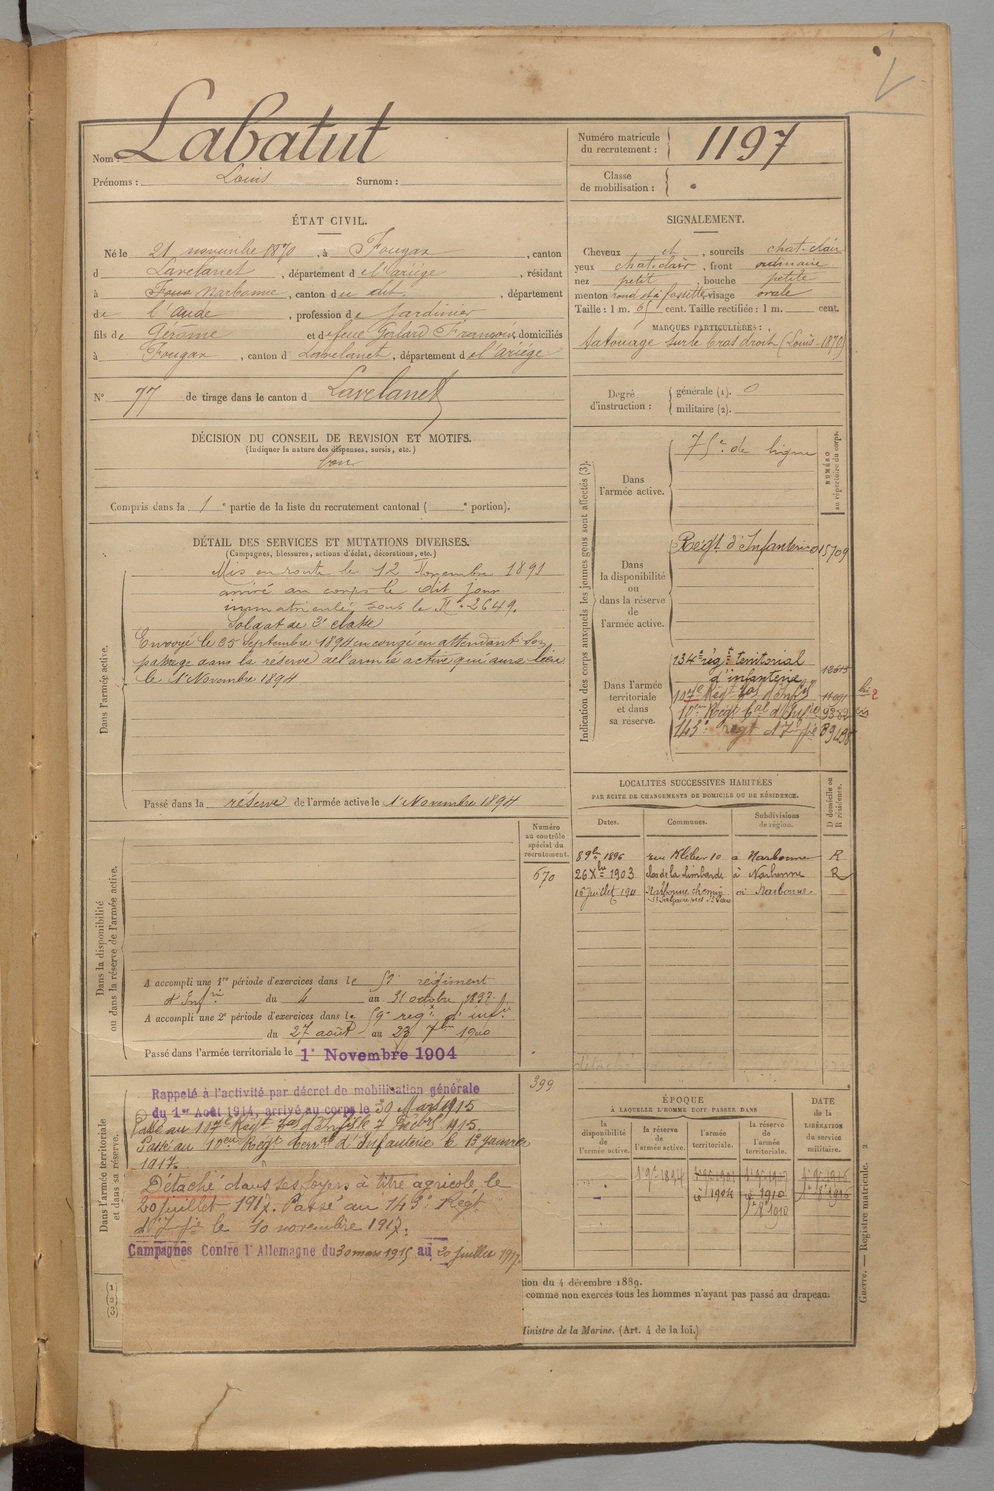 Nom : Labatut
Prénoms : Louis Surnom :
Numéro matricule
du recrutement : 1197
Classe
de mobilisation :
ÉTAT CIVIL.
Né le 21 novembre 1870, à Fougax, canton
d Lavelanet, département de l'ariége, résidant
à Narbonne, canton du dit, département
de l'aude, profession de Jardinier
fils de Gérôme et de feue Françoise, domiciliés
à Fougax, canton d Lavelanet, département de l'ariége
N° 77 de tirage dans le canton d Lavelanet
SIGNALEMENT.
Cheveux et, sourcils chat-clair
yeux chat-clair, front ordinaire
nez petit, bouche petite
menton rond et à fossette, visage ovale
Taille : 1 m. 651 cent. Taille rectifiée : 1 m. cent.
MARQUES PARTICULIÈRES :
tatouage sur le bras droit (Louis-1870)
Degré
d'instruction :
générale (1). 0
militaire (2).
DÉCISION DU CONSEIL DE REVISION ET MOTIFS.
(Indiquer la nature des dispenses, sursis, etc.)
bon
Compris dans la 1e partie de la liste du recrutement cantonal ( e portion).
DÉTAIL DES SERVICES ET MUTATIONS DIVERSES.
(Campagnes, blessures, actions d'éclat, décorations, etc.)
Dans l'armée active.
Mis en route le 12 Novembre 1891
arrivé au corps le dit jour
immatriculé sous le N° 2649.
Soldat de 2e classe
Envoyé le 25 Septembre 1894 en congé en attendant son
passage dans la réserve de l'armée active qui aura lieu
le 1er Novembre 1894
Passé dans la réserve de l'armée active le 1er Novembre 1894
Indication des corps auxquels les jeunes gens sont affectés (3).
NUMÉRO
au répertoire du corps.
Dans
l'armée active.
de ligne
Dans
la disponibilité
ou
dans la réserve
de
l'armée active.
Régt d'Infanterie 015709
Dans l'armée
territoriale
et dans
sa réserve.
134e rég.t territorial
d'infanterie
107e Régt
143e Régt
LOCALITÉS SUCCESSIVES HABITÉES
PAR SUITE DE CHANGEMENTS DE DOMICILE OU DE RÉSIDENCE.
Dates. Communes. Subdivisions
de région. D domicile ou
R résidence.
8 9bre 1896 rue Kléber 10 à Narbonne R
26 Xbre 1903 clos de la Lombarde à Narbonne R
16 juillet 1911 Narbonne chemin à Narbonne
Numéro
au contrôle
spécial du
recrutement.
670
Dans la disponibilité
ou dans la réserve de l'armée active.
A accompli une 1re période d'exercices dans le régiment
d'Infrie du 4 au 31 octobre 1897
A accompli une 2e période d'exercices dans le 59e régt d'infie
du 27 août au 23 7bre 1900
Passé dans l'armée territoriale le 1er Novembre 1904
399
Dans l'armée territoriale
et dans sa réserve.
Rappelé à l'activité par décret de mobilisation générale
du 1er Août 1914, arrivé au corps le 30 Mars 1915
Passé au 107e Régt 1915.
Passé au Régt Terral d'Infanterie le 15 janvier
1917.
Détaché dans ses foyers à titre agricole le
20 juillet 1917. Passé au 143e Régt
d'Ifie le 10 novembre 1917.
Campagnes Contre l'Allemagne du 30 mars 1915 au 20 juillet 1917.
ÉPOQUE
À LAQUELLE L'HOMME DOIT PASSER DANS
la
disponibilité
de
l'armée active.
la réserve
de
l'armée active.
l'armée
territoriale.
la réserve
de
l'armée
territoriale.
DATE
de la
LIBÉRATION
du service
militaire.
1er 9bre 1894
1904
1910
1er 8 1910
(1)
(2)
(3)
tion du 4 décembre 1889.
comme non exercés tous les hommes n'ayant pas passé au drapeau.
Ministre de la Marine. (Art. 4 de la loi.)
Guerre. — Registre matricule. 2